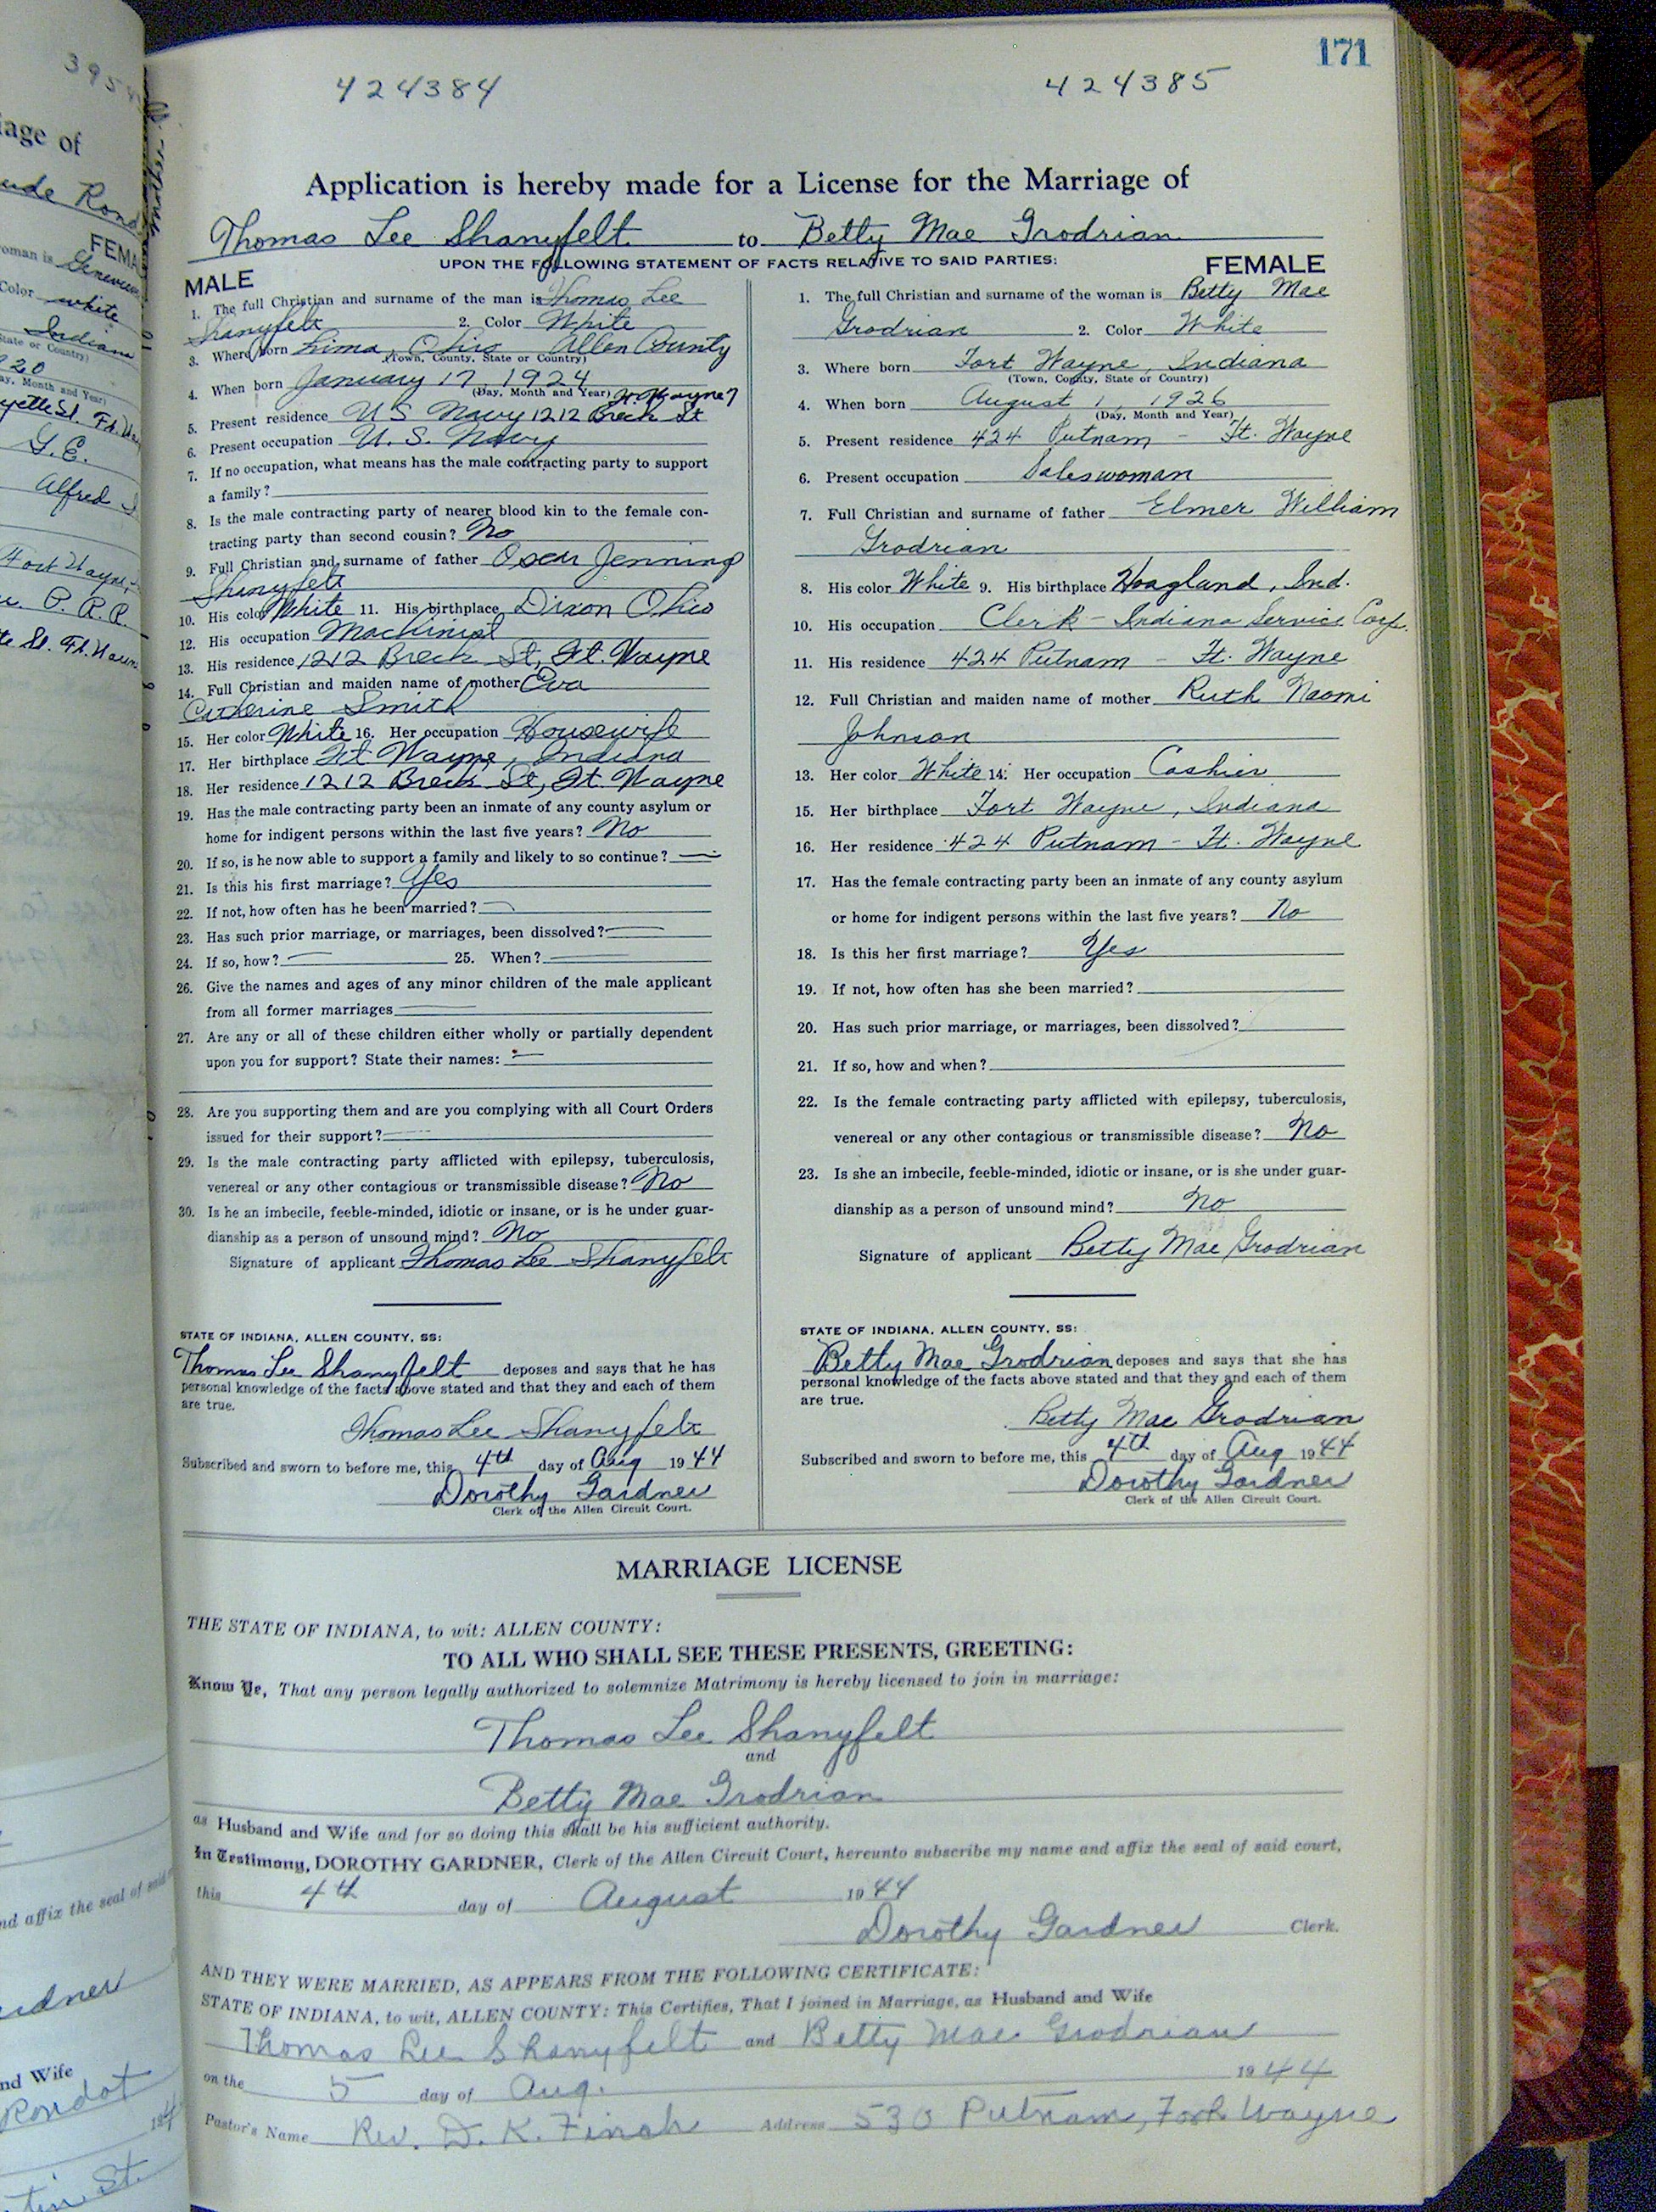 171
424384 424385
Application is hereby made for a License for the Marriage of
Thomas Lee Shanyfelt to Betty Mae Grodrian
UPON THE FOLLOWING STATEMENT OF FACTS RELATIVE TO SAID PARTIES:
MALE
1. The full Christian and surname of the man is Thomas Lee
Shanyfelt 2. Color White
3. Where born Lima, Ohio Allen County
(Town, County, State or Country)
4. When born January 17 1924
(Day, Month and Year) Ft. Wayne
5. Present residence US Navy 1212 Breck St
6. Present occupation U. S. Navy
7. If no occupation, what means has the male contracting party to support
a family?
8. Is the male contracting party of nearer blood kin to the female con-
tracting party than second cousin? No
9. Full Christian and surname of father Oscar Jenning
Shanyfelt
10. His color White 11. His birthplace Dixon Ohio
12. His occupation Machinist
13. His residence 1212 Breck St, Ft. Wayne
14. Full Christian and maiden name of mother Eva
Catherine Smith
15. Her color White 16. Her occupation Housewife
17. Her birthplace Ft Wayne, Indiana
18. Her residence 1212 Breck St, Ft. Wayne
19. Has the male contracting party been an inmate of any county asylum or
home for indigent persons within the last five years? No
20. If so, is he now able to support a family and likely to so continue? —
21. Is this his first marriage? Yes
22. If not, how often has he been married? —
23. Has such prior marriage, or marriages, been dissolved? —
24. If so, how? — 25. When? —
26. Give the names and ages of any minor children of the male applicant
from all former marriages —
27. Are any or all of these children either wholly or partially dependent
upon you for support? State their names: —
28. Are you supporting them and are you complying with all Court Orders
issued for their support? —
29. Is the male contracting party afflicted with epilepsy, tuberculosis,
venereal or any other contagious or transmissible disease? No
30. Is he an imbecile, feeble-minded, idiotic or insane, or is he under guar-
dianship as a person of unsound mind? No
Signature of applicant Thomas Lee Shanyfelt
STATE OF INDIANA, ALLEN COUNTY, SS:
Thomas Lee Shanyfelt deposes and says that he has
personal knowledge of the facts above stated and that they and each of them
are true.
Thomas Lee Shanyfelt
Subscribed and sworn to before me, this 4th day of Aug 1944
Dorothy Gardner
Clerk of the Allen Circuit Court.
FEMALE
1. The full Christian and surname of the woman is Betty Mae
Grodrian 2. Color White
3. Where born Fort Wayne, Indiana
(Town, County, State or Country)
4. When born August 1 1926
(Day, Month and Year)
5. Present residence 424 Putnam - Ft. Wayne
6. Present occupation Saleswoman
7. Full Christian and surname of father Elmer William
Grodrian
8. His color White 9. His birthplace Hoagland, Ind.
10. His occupation Clerk - Indiana Service Corp.
11. His residence 424 Putnam - Ft. Wayne
12. Full Christian and maiden name of mother Ruth Naomi
Johnson
13. Her color White 14. Her occupation Cashier
15. Her birthplace Fort Wayne, Indiana
16. Her residence 424 Putnam - Ft. Wayne
17. Has the female contracting party been an inmate of any county asylum
or home for indigent persons within the last five years? No
18. Is this her first marriage? Yes
19. If not, how often has she been married?
20. Has such prior marriage, or marriages, been dissolved?
21. If so, how and when?
22. Is the female contracting party afflicted with epilepsy, tuberculosis,
venereal or any other contagious or transmissible disease? No
23. Is she an imbecile, feeble-minded, idiotic or insane, or is she under guar-
dianship as a person of unsound mind? No
Signature of applicant Betty Mae Grodrian
STATE OF INDIANA, ALLEN COUNTY, SS:
Betty Mae Grodrian deposes and says that she has
personal knowledge of the facts above stated and that they and each of them
are true.
Betty Mae Grodrian
Subscribed and sworn to before me, this 4th day of Aug 1944
Dorothy Gardner
Clerk of the Allen Circuit Court.
MARRIAGE LICENSE
THE STATE OF INDIANA, to wit: ALLEN COUNTY:
TO ALL WHO SHALL SEE THESE PRESENTS, GREETING:
Know Ye, That any person legally authorized to solemnize Matrimony is hereby licensed to join in marriage:
Thomas Lee Shanyfelt
and
Betty Mae Grodrian
as Husband and Wife and for so doing this shall be his sufficient authority.
In Testimony, DOROTHY GARDNER, Clerk of the Allen Circuit Court, hereunto subscribe my name and affix the seal of said court,
this 4th day of August 1944
Dorothy Gardner Clerk.
AND THEY WERE MARRIED, AS APPEARS FROM THE FOLLOWING CERTIFICATE:
STATE OF INDIANA, to wit, ALLEN COUNTY: This Certifies, That I joined in Marriage, as Husband and Wife
Thomas Lee Shanyfelt and Betty Mae Grodrian
on the 5 day of Aug. 1944
Pastor's Name Rev. D. K. Finch Address 530 Putnam, Fort Wayne